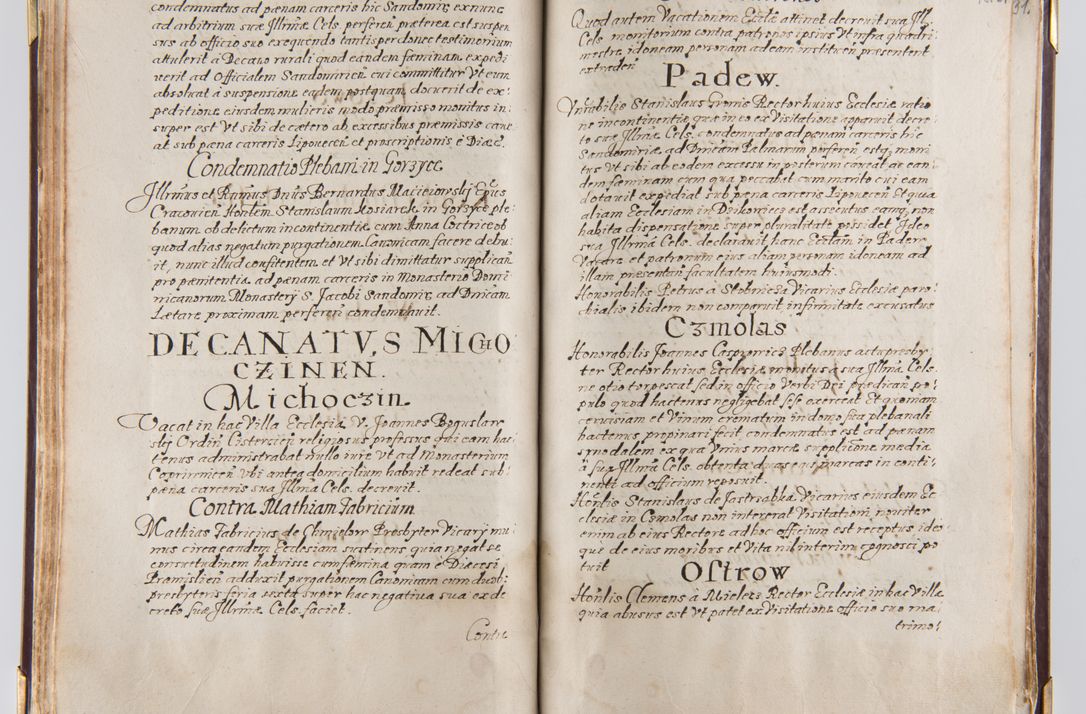 condemnatus ad pænam carceris hic Sandomiriæ exnunc
ad arbitrium suæ Illrmæ Cels. perferen præterea est suspen
sus ab officio suo exequendo tantisper donec testimonium
attulerit à Decano rurali quod eandem fæminam expedi
verit ad Officialem Sandomirien cui committitur Vt eum
absoluat à suspensione eadem postquam docuerit de ex:
peditione eiusdem mulieris modo præmisso monitus in:
super est Vt sibi de cætero ab excessibus præmissis cave
at sub pæna carceris Liponecen et proscriptionis è Diæc.
Condemnatio Plebani in Gorzyce
Illrmus et Rmus Dnus Bernardus Macieiowskj Epus
Cracovien Honlem Stanislaum Kosiarek in Gorzyce ple:
banum ob delictum incontinentiæ cum Anna Coctrice ob
quod alias negatum purgationem Canonicam facere debu:
it, nunc illud confitentem et Vt sibi dimittatur supplican
pro pænitentia ad pænam carceris in Monasterio Domi:
nicanorum Monasterij S. Jacobi Sandomiriæ ad Dnicam
Lætare proximam perferen condemnavit.
DECANATVS MICHO
CZINEN.
Michoczin
Vacat in hac Villa Ecclesia V. Joannes Boguslaw
skj Ordin Cistercien religiosus professus qui eam hac
tenus administrabat nullo iure Vt ad Monasterium
Coprivnicen Vbi antea domicilium habuit redeat sub
pæna carceris sua Illrma Cels. decrevit.
Contra Mathiam Fabricium
Mathias Fabricius de Chmielow Presbyter Vicarij mu
nus circa eandem Ecclesiam sustinens quia negat se
consuetudinem habuisse cum fæmina quam è Diæcesi
Præmislien adduxit purgationem Canonicam cum duob:
presbyteris feria sexta super hac negativa sua ex de
creto suæ Illrmæ Cels. faciet.
Contra
31.
Quod autem Vacationem Ecclæ attinet decrevit sua Ill:
Cels. monitorium contra patronos ipsius Vt infra quadri
mestre idoneam personam ad eam instituen præsentent
extraden
Padew.
Vnrabilis Stanislaus Gromis Rector huius Ecclesiæ ratio
ne incontinentiæ quæ in eo ex Visitatione apparuit decre
to suæ Illrmæ Cels. condemnatus ad pænam carceris hic
Sandomiriæ ad Dnicam Palmarum perferen est, moni
tus Vt sibi ab eodem excessu in posterum caveat ac ean
dem fæminam cum qua peccabat cum marito cui eam
dotavit expediat sub pæna carceris Liponecen Et quia
aliam Ecclesiam in Dzikowiec est assecutus eamq non
habita dispensatione super pluralitate possidet Ideo
sua Illrma Cels. declaravit hanc Ecclam in Padew
Vacare et patronum eius aliam personam idoneam ad
illam præsentan facultatem huiusmodi.
Honorabilis Petrus à Slobnicza Vicarius Ecclesiæ paro
chialis ibidem non comparuit infirmitate excusatus
Czmolas
Honorabilis Joannes Casprowicz Plebanus actu presby
ter Rector huius Ecclesiæ monitus à sua Illrma Cels.
ne otio torpescat sed in officio Verbi Dei prædican po:
pulo quod hactenus negligebat sese exerceat Et quoniam
cervisiam et Vinum crematum in domo sua plebanali
hactenus propinari fecit condemnatus est ad pænam
synodalem ex qua Vnius marcæ supplitione media
à sua Illrma Cels. obtenta duas eqs marcas in conti:
nenti ad officium reposuit.
Honlis Stanislaus de Jastrzabka Vicarius eiusdem Ec
clesiæ in Czmolas non intererat Visitationi noviter
enim ab eius Rectore ad hoc officium est receptus ideo
que de eius moribus et Vita nil interim cognosci po
tuit
Ostrow
Honlis Clemens à Mielecz Rector Ecclesiæ in hac Villa
quia abusus est Vt patet ex Visitatione officio suo ma:
trimo: